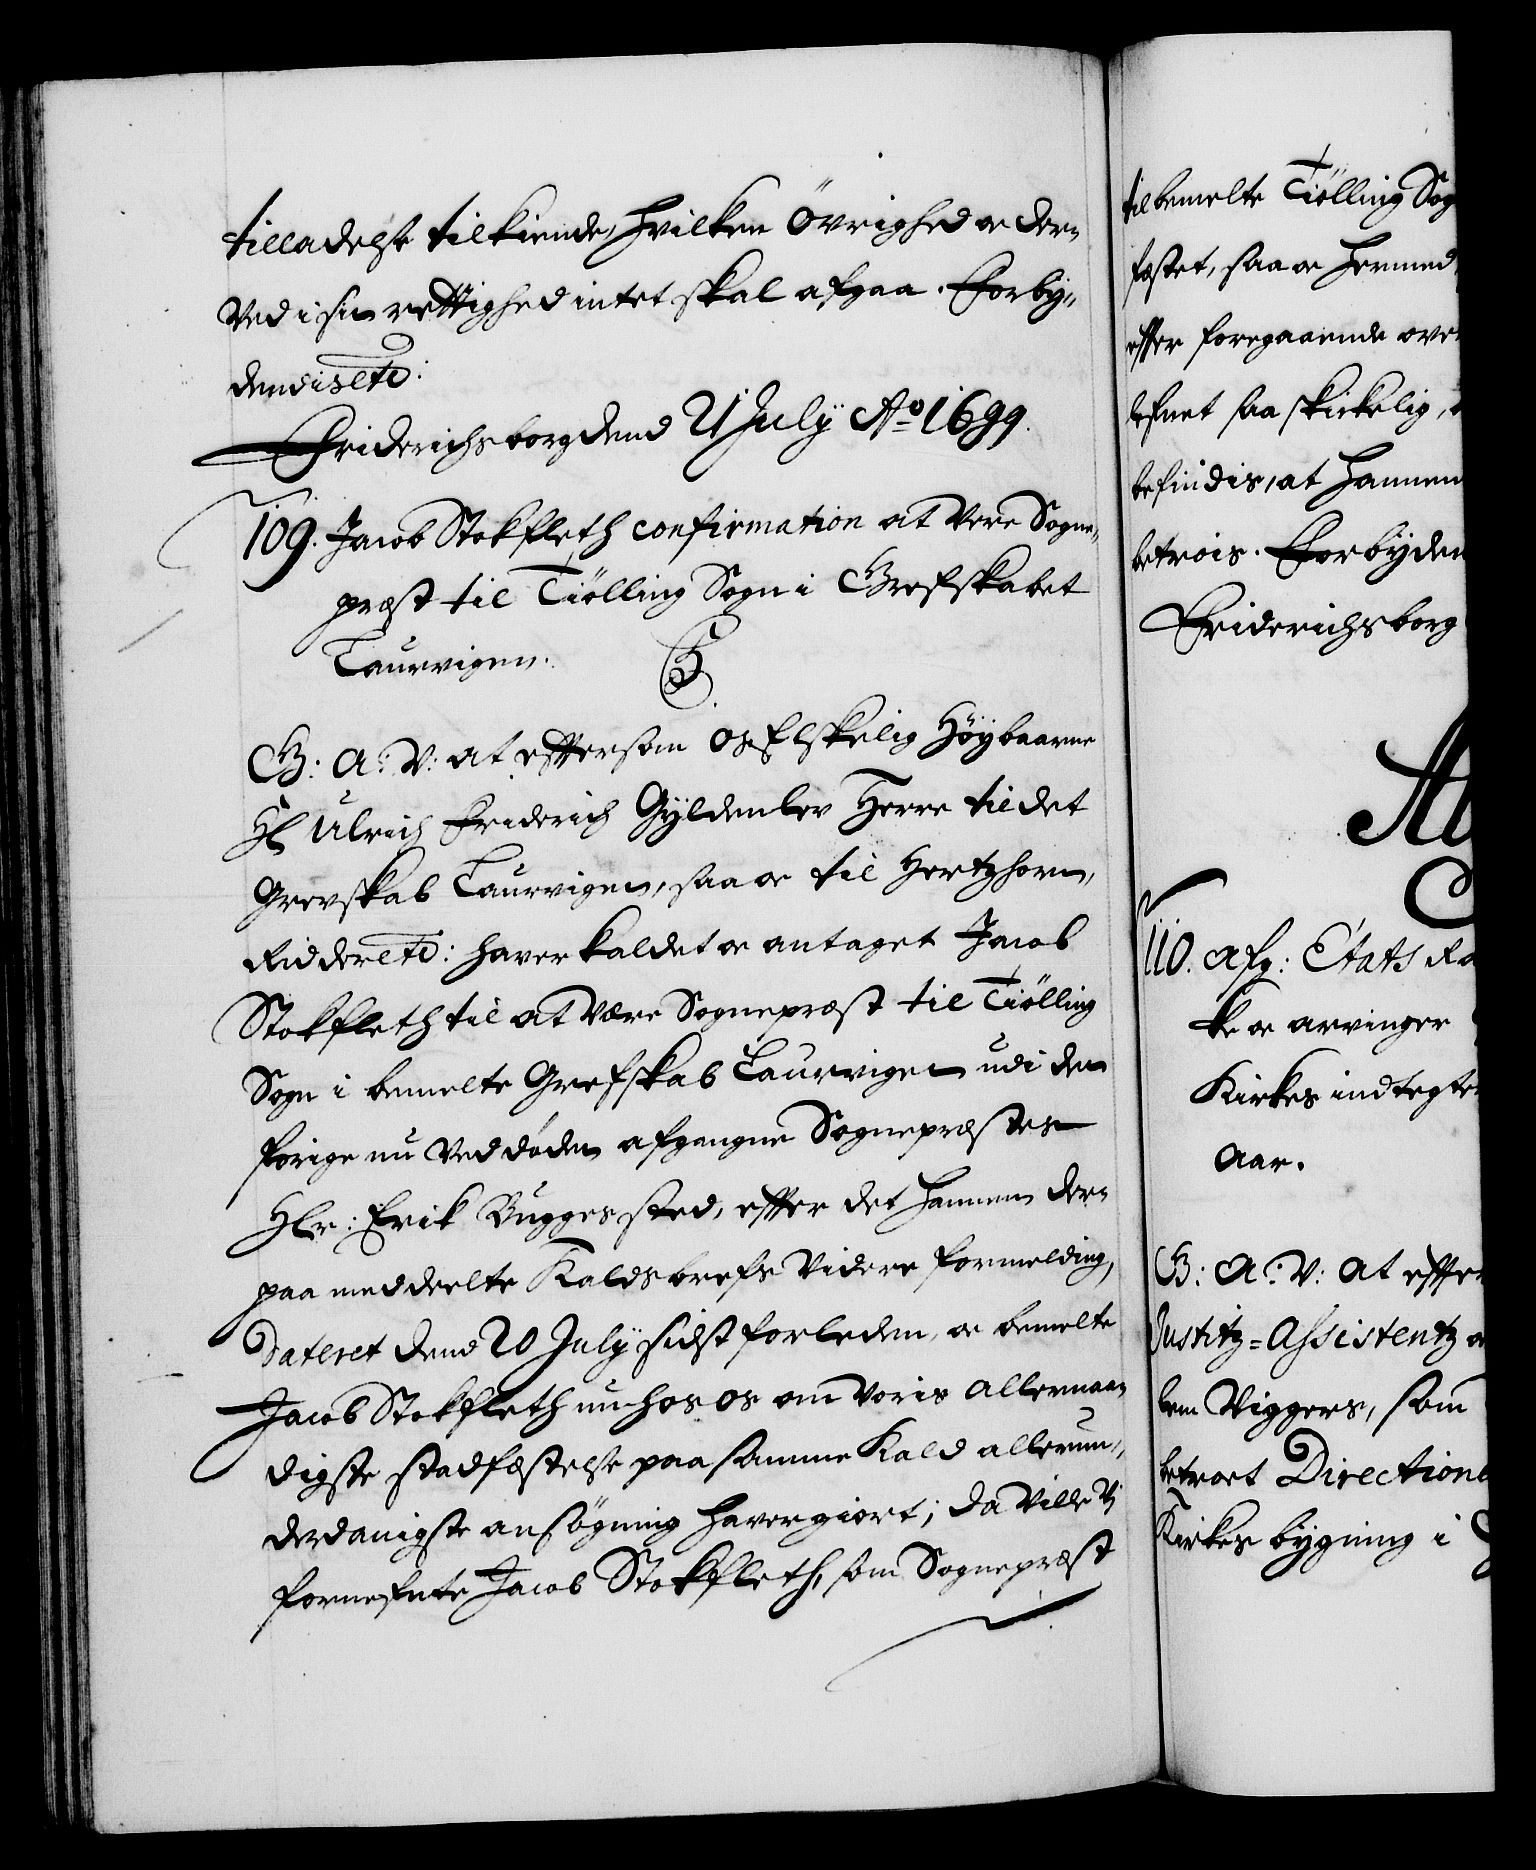 tilladelse tilkiende, hvilken Øvrighed oc der-
ved i sin rettighed intet skal afgaa. Forby-
dendis etc:
Friderichsborg dend 21 July Ao 1699.
109. Jacob Stokfleth confirmation at være Sogne-
præst til Tiølling Sogn i Grefskabet
Laurvigen.
G: A: V: at eftersom Os Elskelig Høybaarne
Hr Ulrich Friderich Gyldenlev Herre til det
Grevskab Laurvigen, saa oc til Hertzhorn,
Ridder etc: haver kaldet oc antaget Jacob
Stokfleth til at være Sognepræst til Tiølling
Sogn i bemelte Grefskab Laurvigen udi den
forige nu ved døden afgangne Sognepræstes
Hr: Erik Bugges sted, efter det hannem der-
paa meddeelte Kaldsbrefs videre formelding,
Dateret dend 20 July sidstforleden, oc bemelte
Jacob Stokfleth nu hos os om Voris allernaa-
digste stadfæstelse paa samme Kald allerun-
derdanigste ansøgning haver giort; da ville Vj
fornefnte Jacob Stokfleth, som Sognepræst
til bemelte Tiølling Sog
fæstet, saa oc hermed
efter foregaaende ove
lefnet saa skikkelig,
befindis, at hannem
betrois. Forbyden
Friderichsborg
110. Afg: Etats Ra
ke oc arvinger
Kirkes indtegte
Aar.
G: A: V: at efter
Justitz-Assistentz oc
lem Viggers, som
betroet Directione
Kirkes bygning i